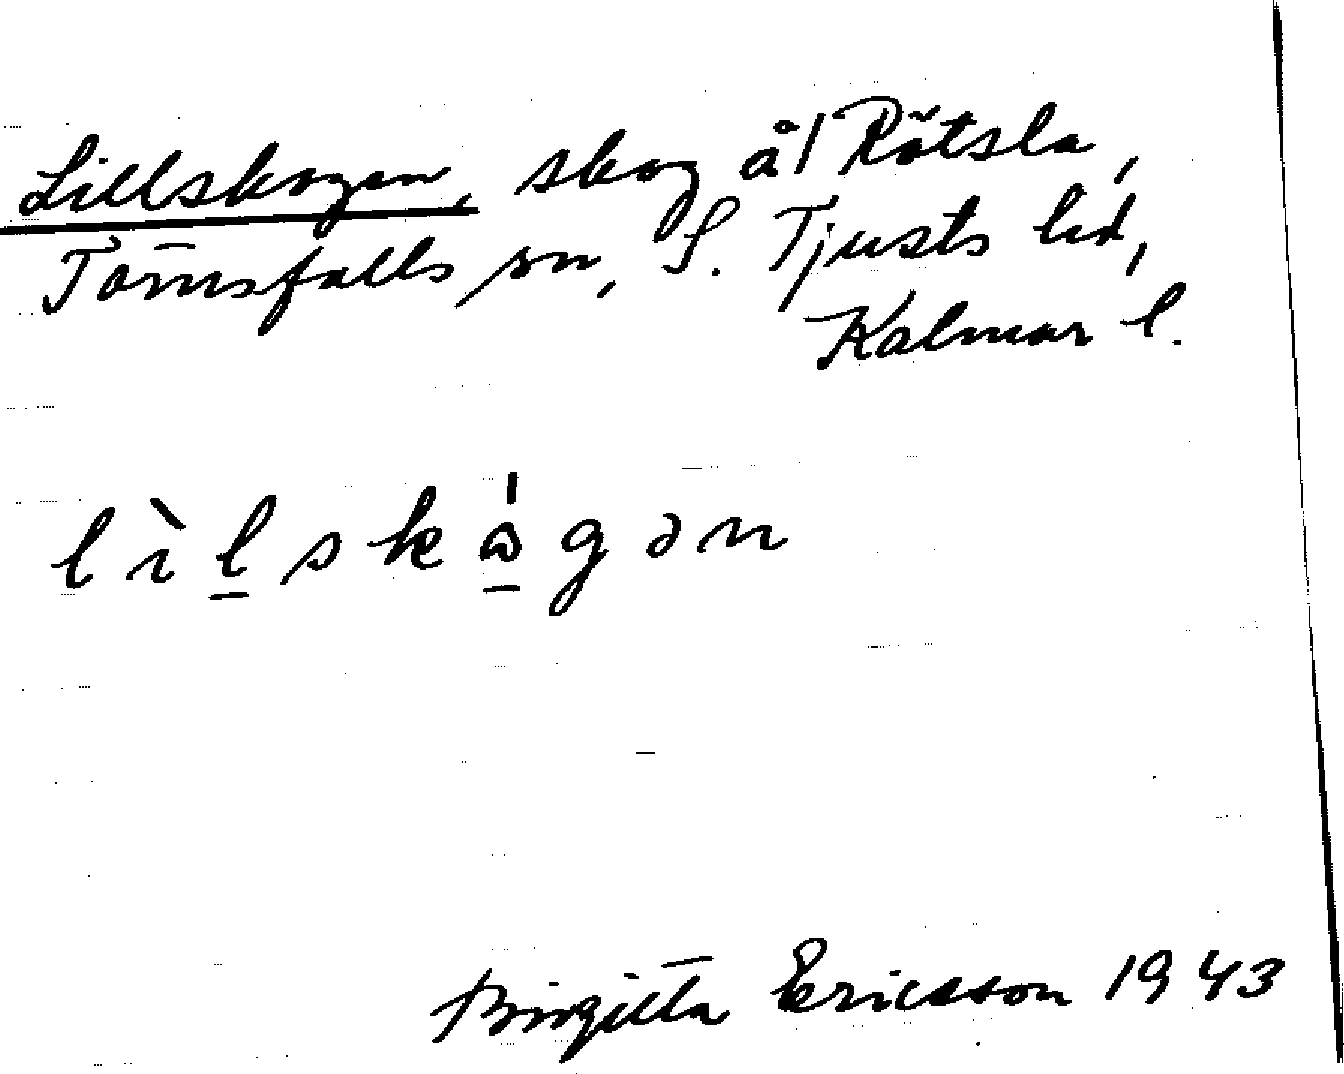 Lillskogen, skog å/ Rötsla,
Törnsfalls sn, S. Tjusts hd,
Kalmar l.
lìlskógən
Birgitta Ericsson 1943